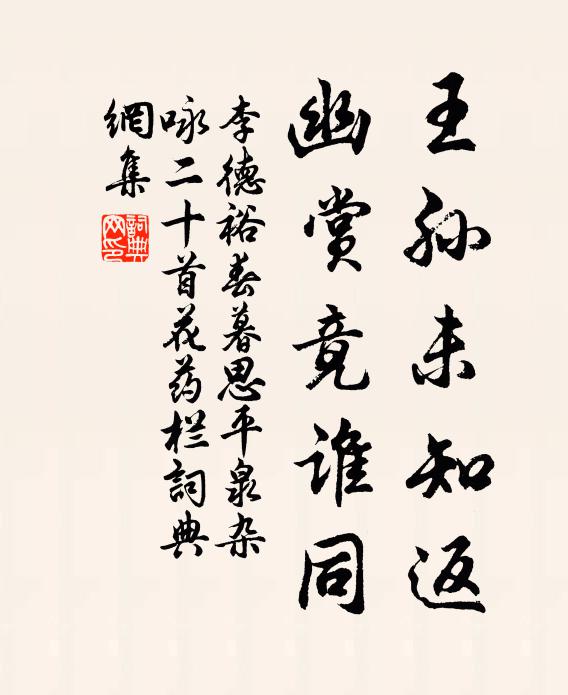 王孙未知返
幽赏竟谁同
李德裕春暮思平泉杂
咏二十首花药栏词典
網集
詞典
网印